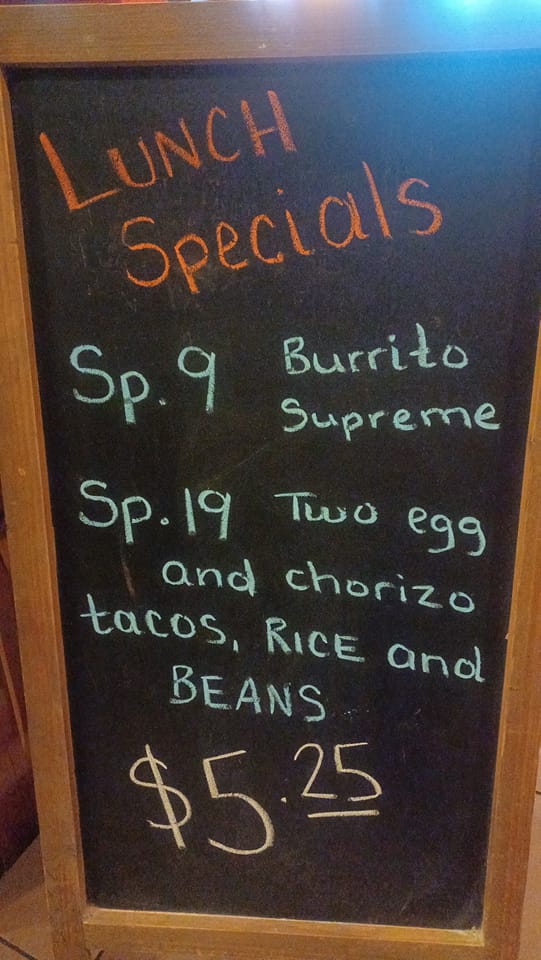 LUNCH
Specials
Sp. 9 Burrito
Supreme
Sp. 19 Two egg
and chorizo
tacos, RICE and
BEANS
$5.25